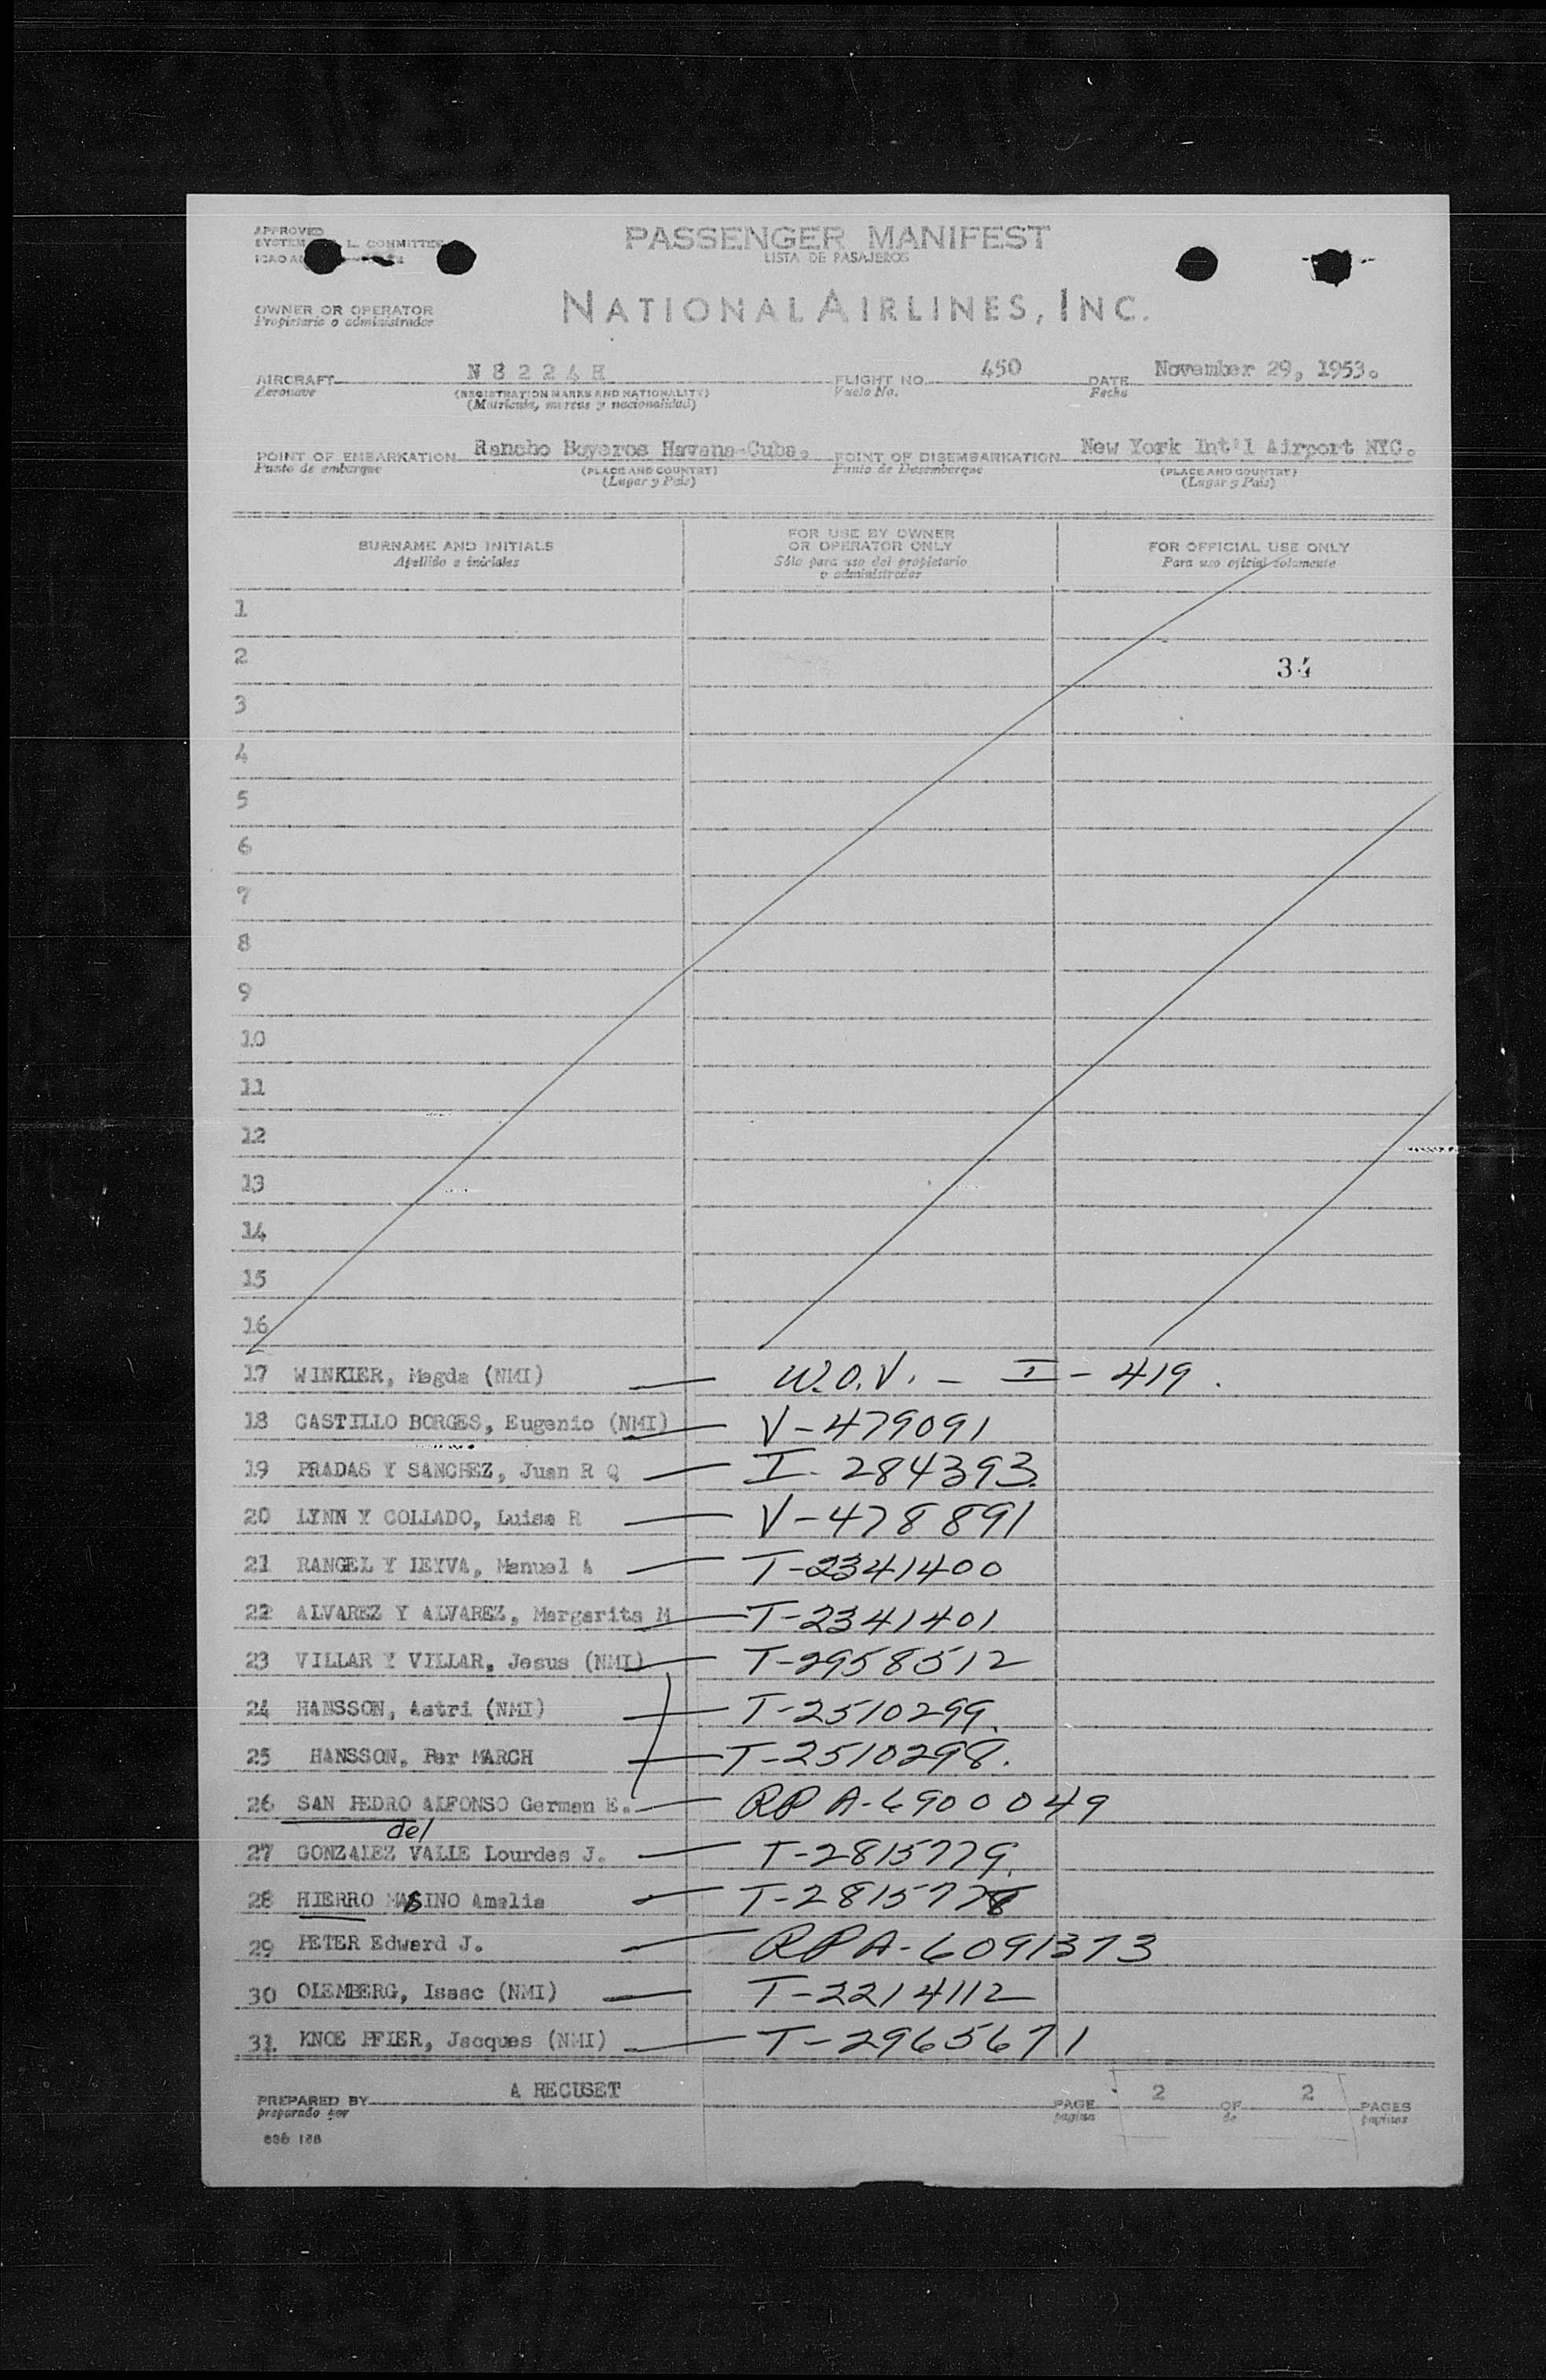 APPROVED
SYSTEM L. COMMITTEE
ICAO
PASSENGER MANIFEST
LISTA DE PASAJEROS
OWNER OR OPERATOR
Propietario o administrador
NATIONAL AIRLINES, INC.
AIRCRAFT N 8 2 2 4 H FLIGHT NO. 450 DATE November 29, 1953.
Aeronave (REGISTRATION MARKS AND NATIONALITY) Vuelo No. Fecha
(Matricula, marcas y nacionalidad)
POINT OF EMBARKATION Rancho Boyeros Havana-Cuba. POINT OF DISEMBARKATION New York Int'l Airport NYC.
Punto de embarque (PLACE AND COUNTRY) Punto de Desembarque (PLACE AND COUNTRY)
(Lugar y Pais) (Lugar y Pais)
SURNAME AND INITIALS FOR USE BY OWNER OR OPERATOR ONLY FOR OFFICIAL USE ONLY
Apellido e iniciales Sólo para uso del propietario o administrador Para uso oficial solamente
1
2 34
3
4
5
6
7
8
9
10
11
12
13
14
15
16
17 WINKIER, Magda (NMI) — W.O.V. – I – 419.
18 CASTILLO BORGES, Eugenio (NMI) — V-479091
19 PRADAS Y SANCHEZ, Juan R Q — I-284393.
20 LYNN Y COLLADO, Luisa R — V-478891
21 RANGEL Y LEYVA, Manuel A — T-2341400
22 ALVAREZ Y ALVAREZ, Margarita M — T-2341401
23 VILLAR Y VILLAR, Jesus (NMI) — T-2958512
24 HANSSON, Astri (NMI) — T-2510299.
25 HANSSON, Per MARCH — T-2510298.
26 SAN PEDRO ALFONSO German E. — RP A-6900049
del
27 GONZALEZ VALLE Lourdes J. — T-2815779.
28 HIERRO Amalia — T-2815778
29 PETER Edward J. — RP A-6091373
30 OLEMBERG, Isaac (NMI) — T-2214112
31 KNOE PFIER, Jacques (NMI) — T-2965671
PREPARED BY A RECUSET PAGE 2 OF 2 PAGES
preparado por pagina de paginas